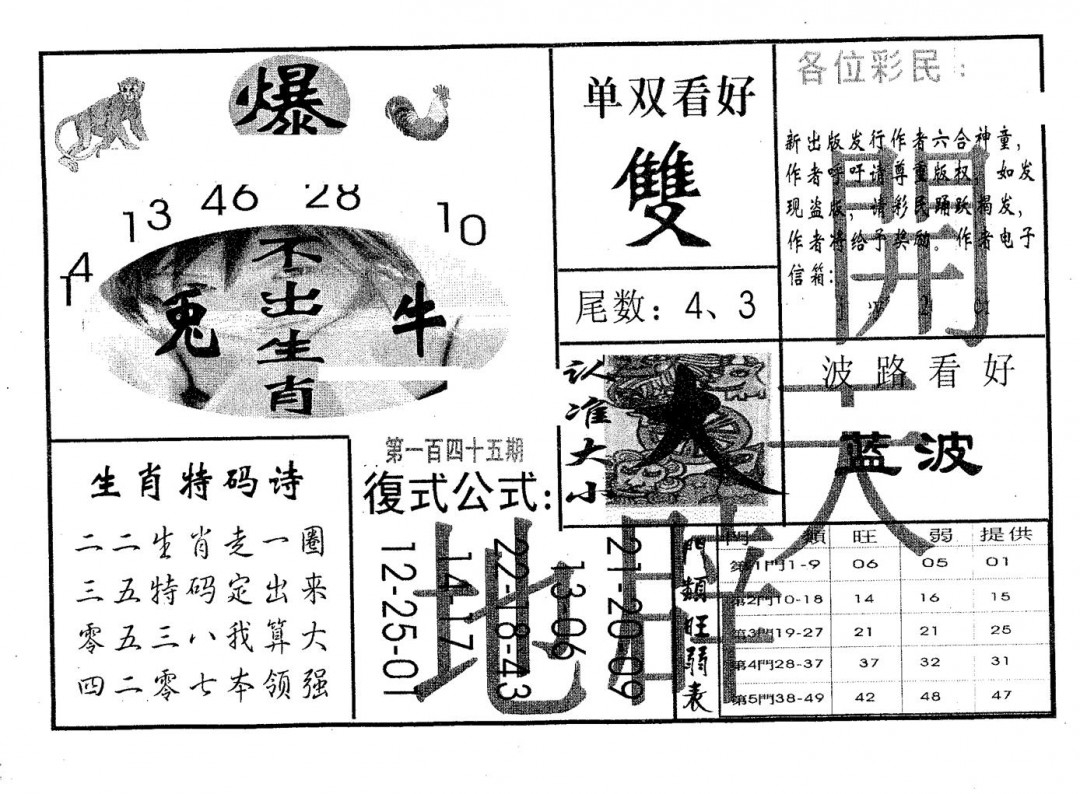 爆
14 13 46 28 10
不出生肖
兎 牛
单双看好
雙
尾数：4、3
各位彩民：
新出版发行作者六合神童，
作者呼吁请尊重版权，如发
现盗版，请彩民踊跃揭发，
作者将给予奖励。作者电子
信箱：
開
认准大小
大
波路看好
蓝波
天
生肖特码诗
二二生肖走一圈
三五特码定出来
零五三八我算大
四二零七本领强
第一百四十五期
復式公式：
12-25-01
14-17
22-18-43
13-06
21-20-09
地
門類旺弱表
門類 旺 弱 提供
第1門1-9 06 05 01
第2門10-18 14 16 15
第3門19-27 21 21 25
第4門28-37 37 32 31
第5門38-49 42 48 47